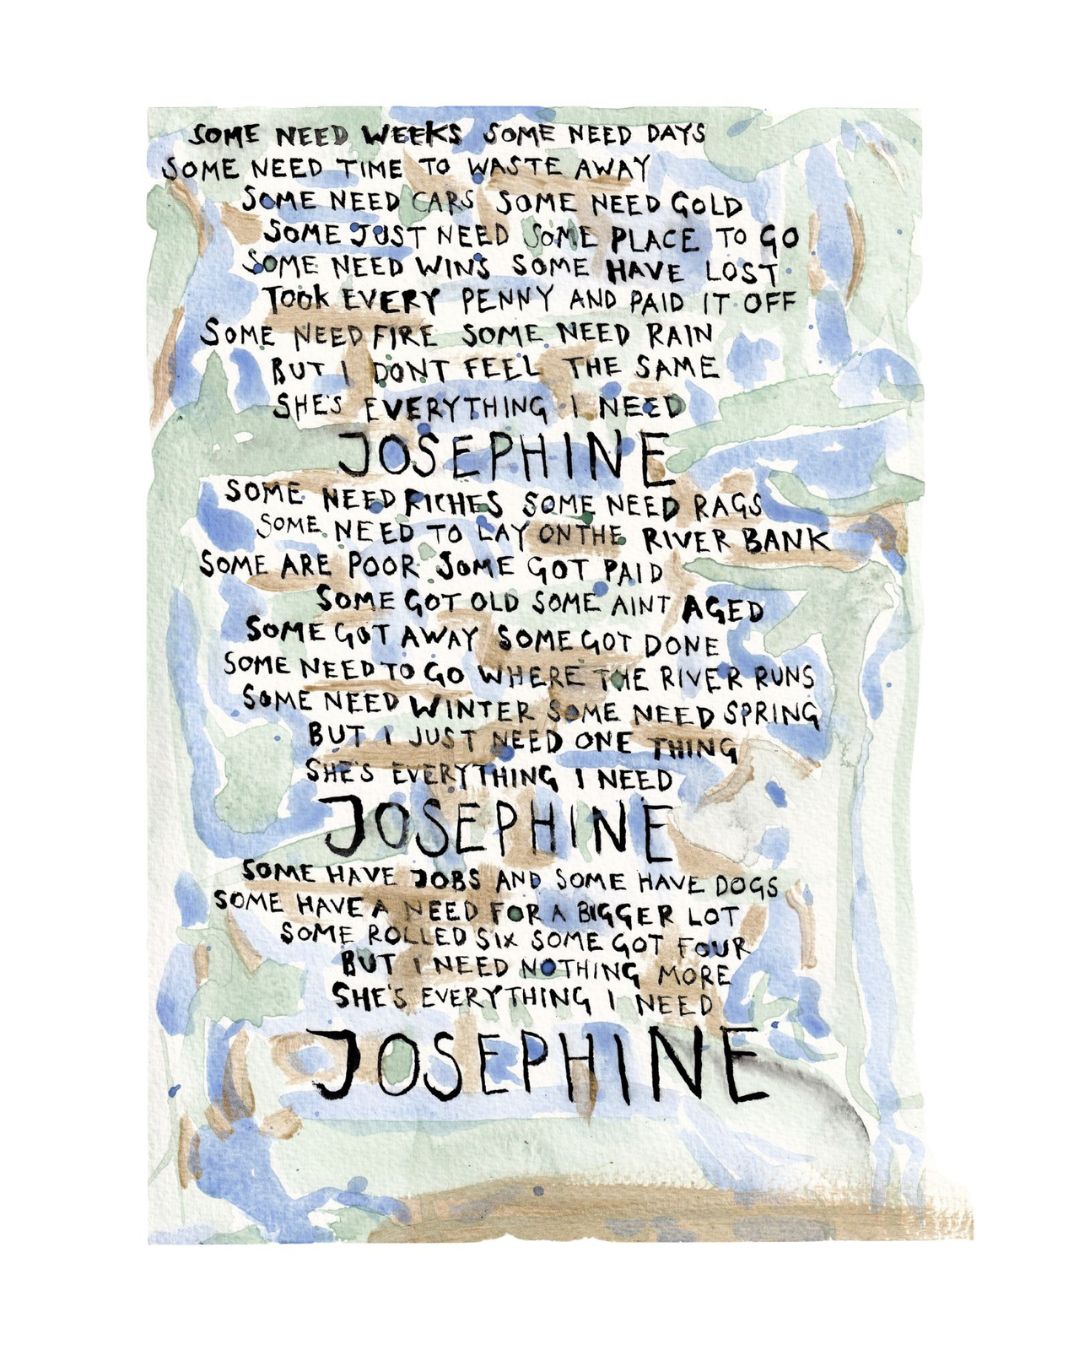 SOME NEED WEEKS SOME NEED DAYS
SOME NEED TIME TO WASTE AWAY
SOME NEED CARS SOME NEED GOLD
SOME JUST NEED SOME PLACE TO GO
SOME NEED WINS SOME HAVE LOST
TOOK EVERY PENNY AND PAID IT OFF
SOME NEED FIRE SOME NEED RAIN
BUT I DONT FEEL THE SAME
SHE'S EVERYTHING I NEED
JOSEPHINE
SOME NEED RICHES SOME NEED RAGS
SOME NEED TO LAY ON THE RIVER BANK
SOME ARE POOR SOME GOT PAID
SOME GOT OLD SOME AINT AGED
SOME GOT AWAY SOME GOT DONE
SOME NEED TO GO WHERE THE RIVER RUNS
SOME NEED WINTER SOME NEED SPRING
BUT I JUST NEED ONE THING
SHE'S EVERYTHING I NEED
JOSEPHINE
SOME HAVE JOBS AND SOME HAVE DOGS
SOME HAVE A NEED FOR A BIGGER LOT
SOME ROLLED SIX SOME GOT FOUR
BUT I NEED NOTHING MORE
SHE'S EVERYTHING I NEED
JOSEPHINE